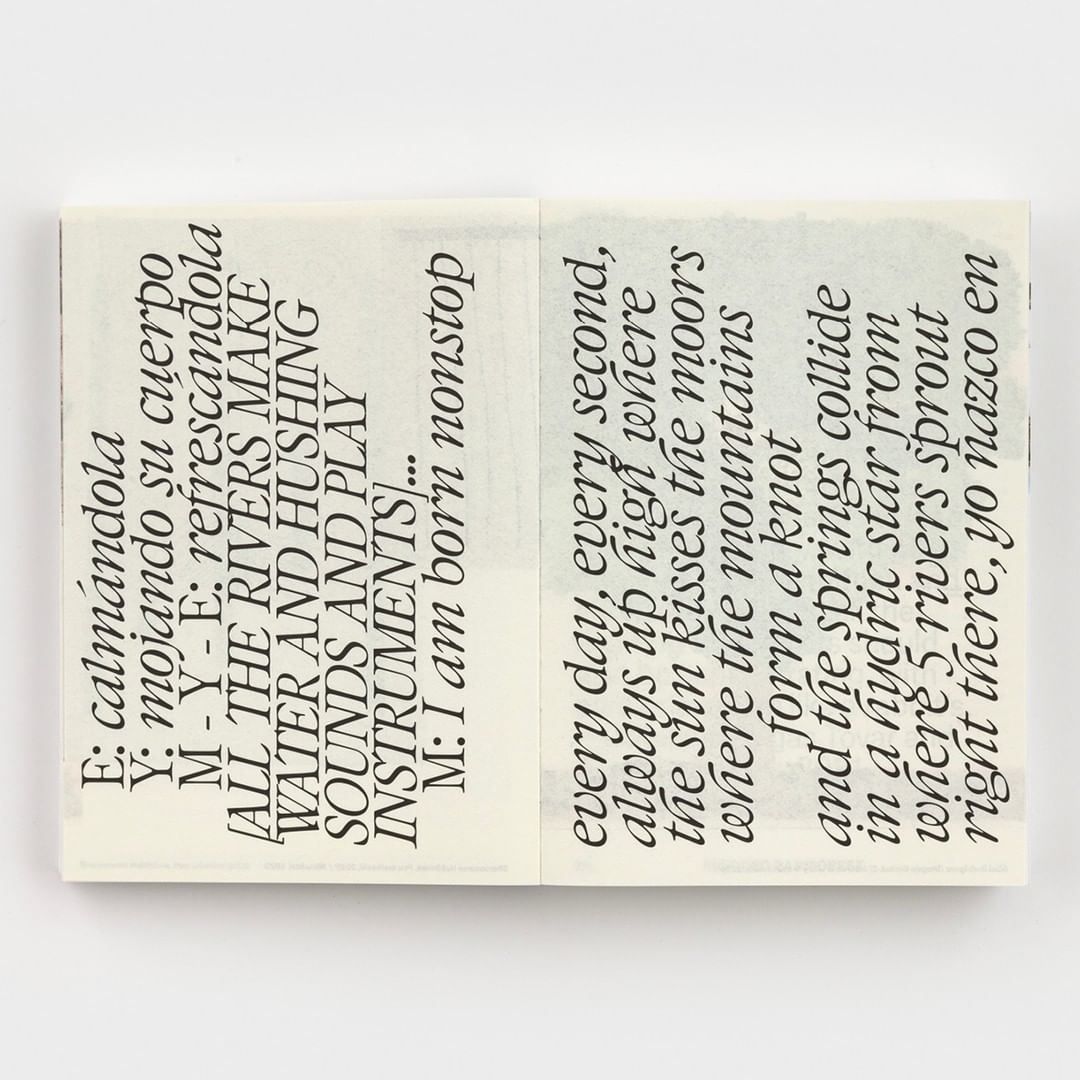 E: calmándola
Y: mojando su cuerpo
M - Y - E: refrescándola
[ALL THE RIVERS MAKE
WATER AND HUSHING
SOUNDS AND PLAY
INSTRUMENTS]...
M: I am born nonstop
every day, every second,
always up high where
the sun kisses the moors
where the mountains
form a knot
and the springs collide
in a hydric star from
where 5 rivers sprout
right there, yo nazco en